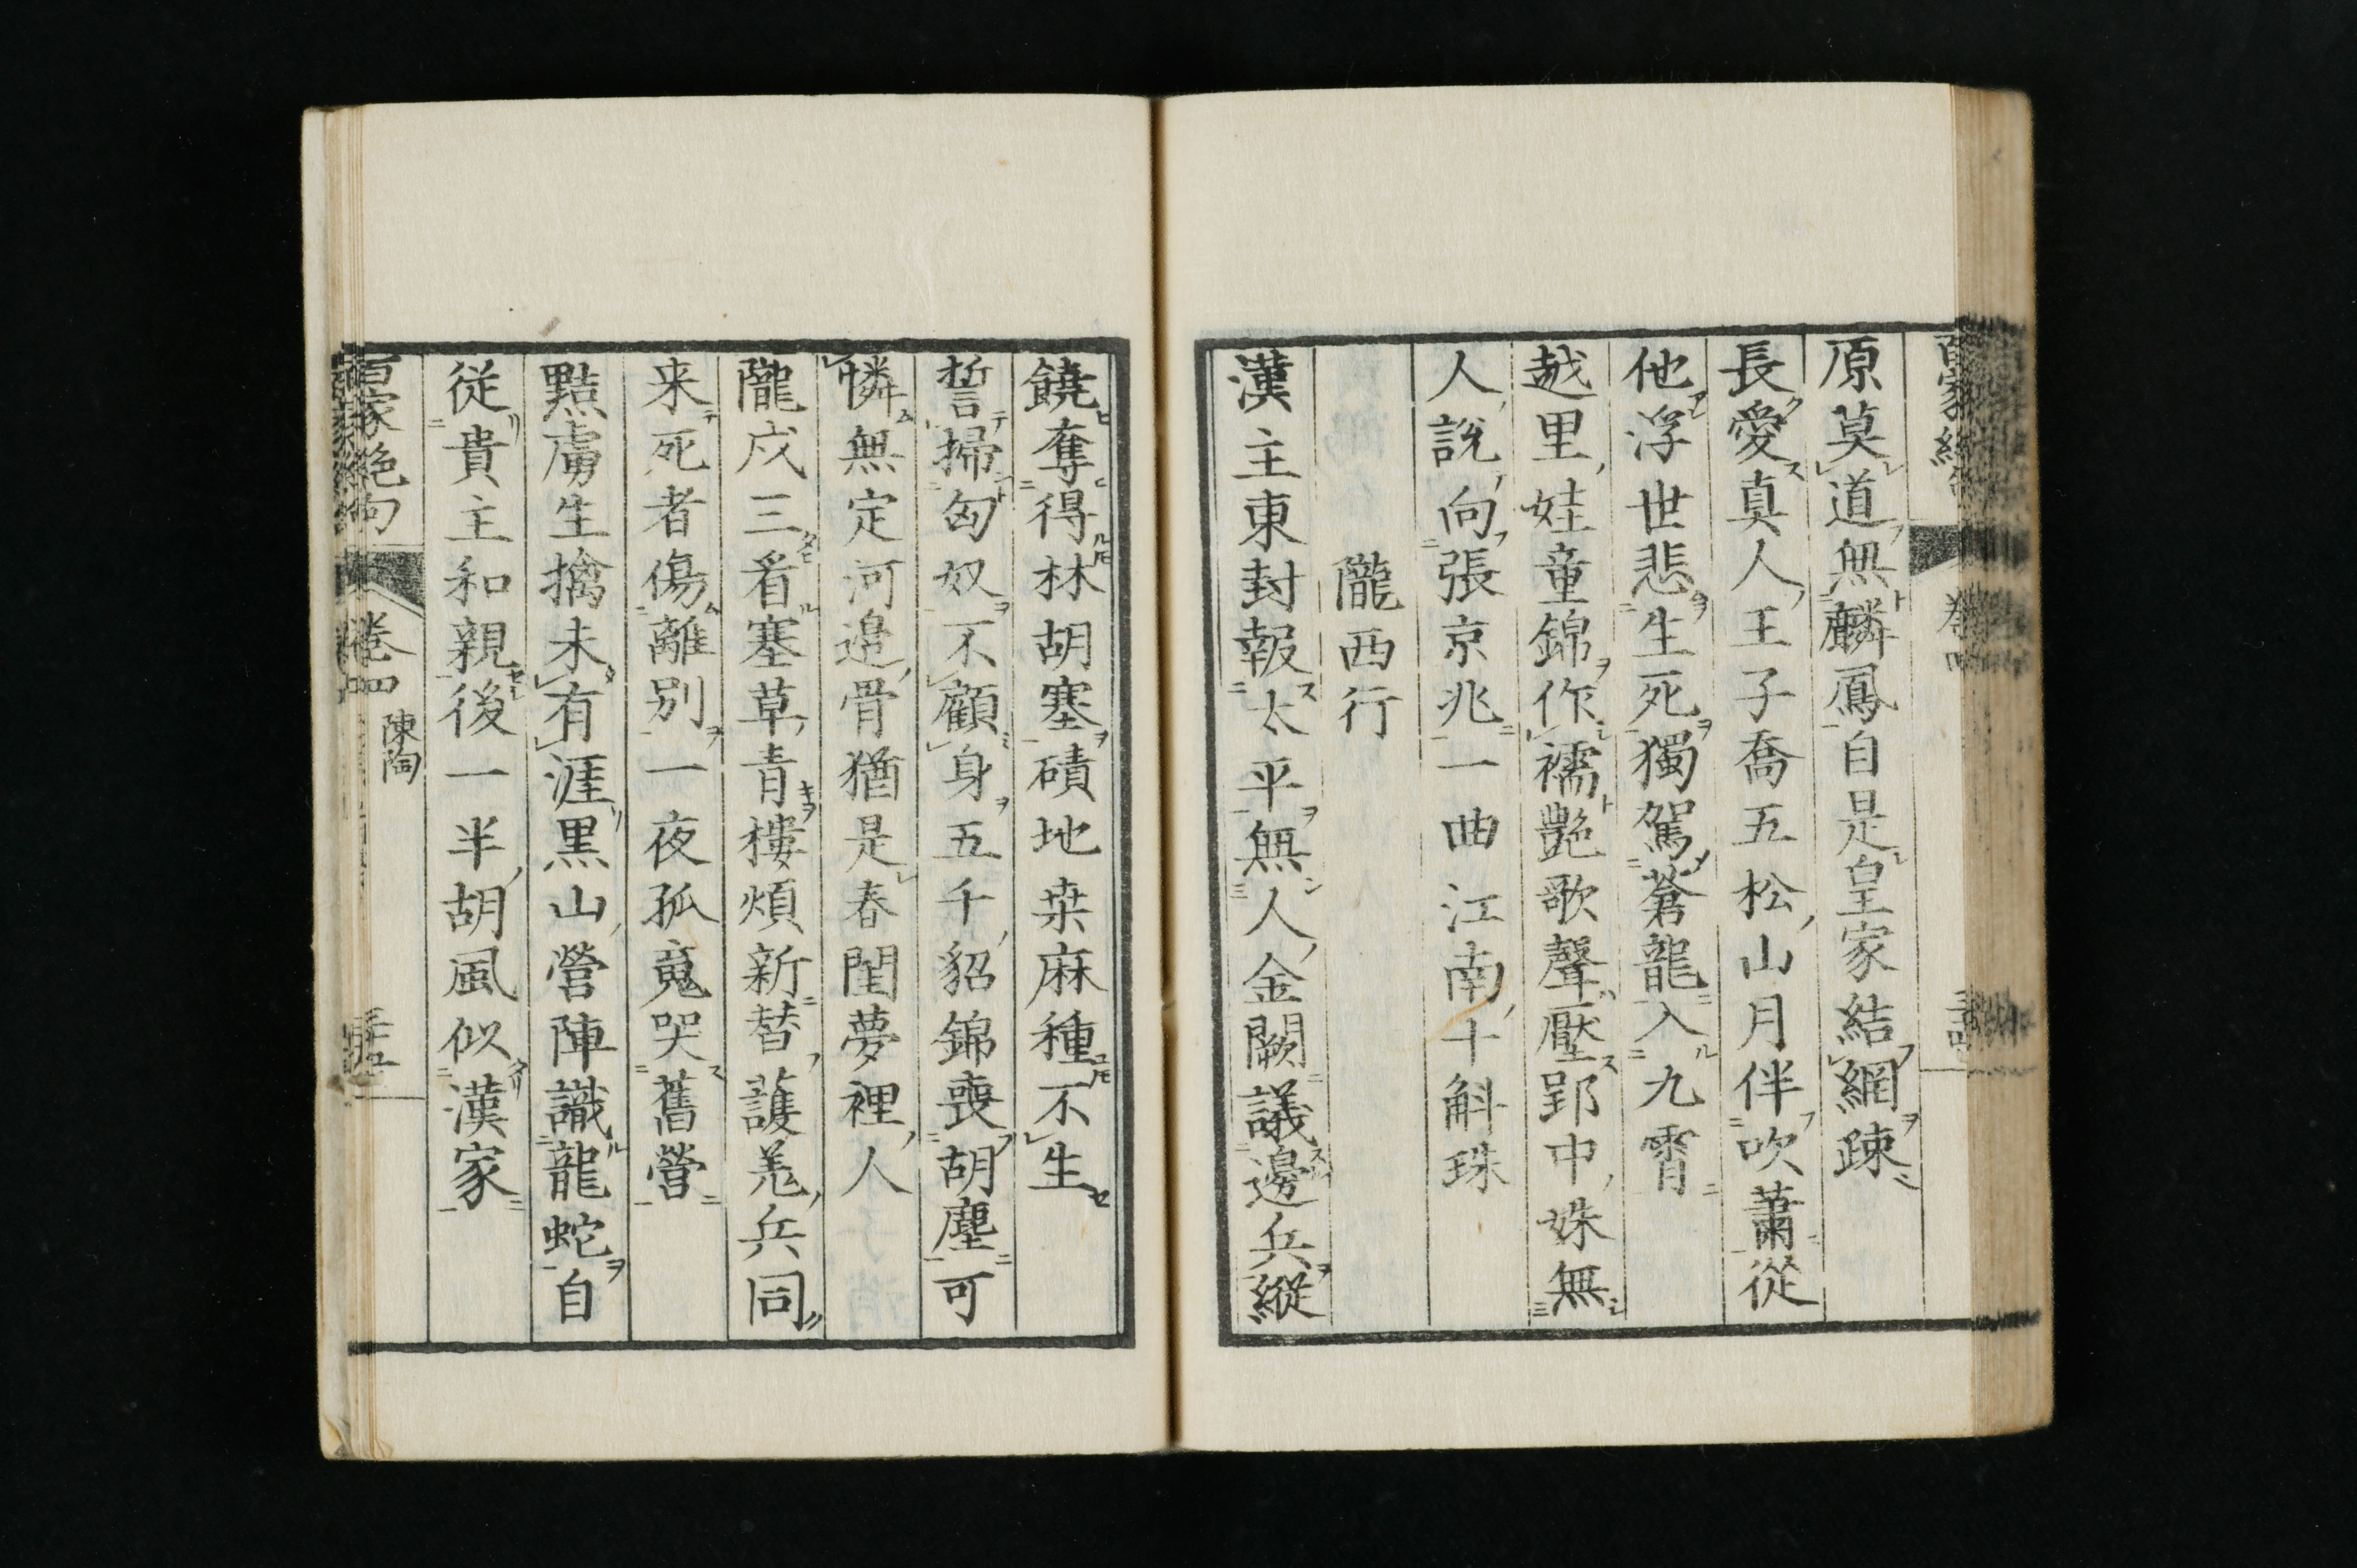 原莫道無麟鳳自是皇家結網踈
長愛真人王子喬五松山月伴吹蕭從
他浮世悲生死獨駕蒼龍入九霄
越里娃童錦作襦艷歌聲壓郢中姝無
人說向張京兆一曲江南十斛珠
隴西行
漢主東封報太平無人金闕議邊兵縱
饒奪得林胡塞磧地桒麻種不生
誓掃匈奴不顧身五千貂錦喪胡塵可
憐無定河邉骨猶是春閨夢裡人
隴戍三看塞草青樓煩新替護羌兵同
来死者傷離別一夜孤䰟哭舊營
黠虜生擒未有涯黒山營陣識龍蛇自
従貴主和親後一半胡風似漢家
百家絶句 卷四 陳陶